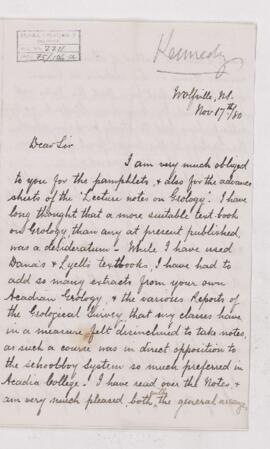 Kennedy
Wolfville, N.S.
Nov 17th/80
Dear Sir
I am very much obliged
to you for the pamphlets, & also for the advance
sheets of the "Lecture notes on Geology". I have
long thought that a more suitable text book
on Geology than any at present published,
was a desideratum. While I have used
Dana's & Lyell's textbooks, I have had to
add so many extracts from your own
Acadian Geology, & the various Reports of
the Geological Survey, that my classes have
in a measure felt disinclined to take notes,
as such a course was in direct opposition to
the schoolboy system so much preferred in
Acadia College. I have read over the Notes, &
am very much pleased both with the general arrange